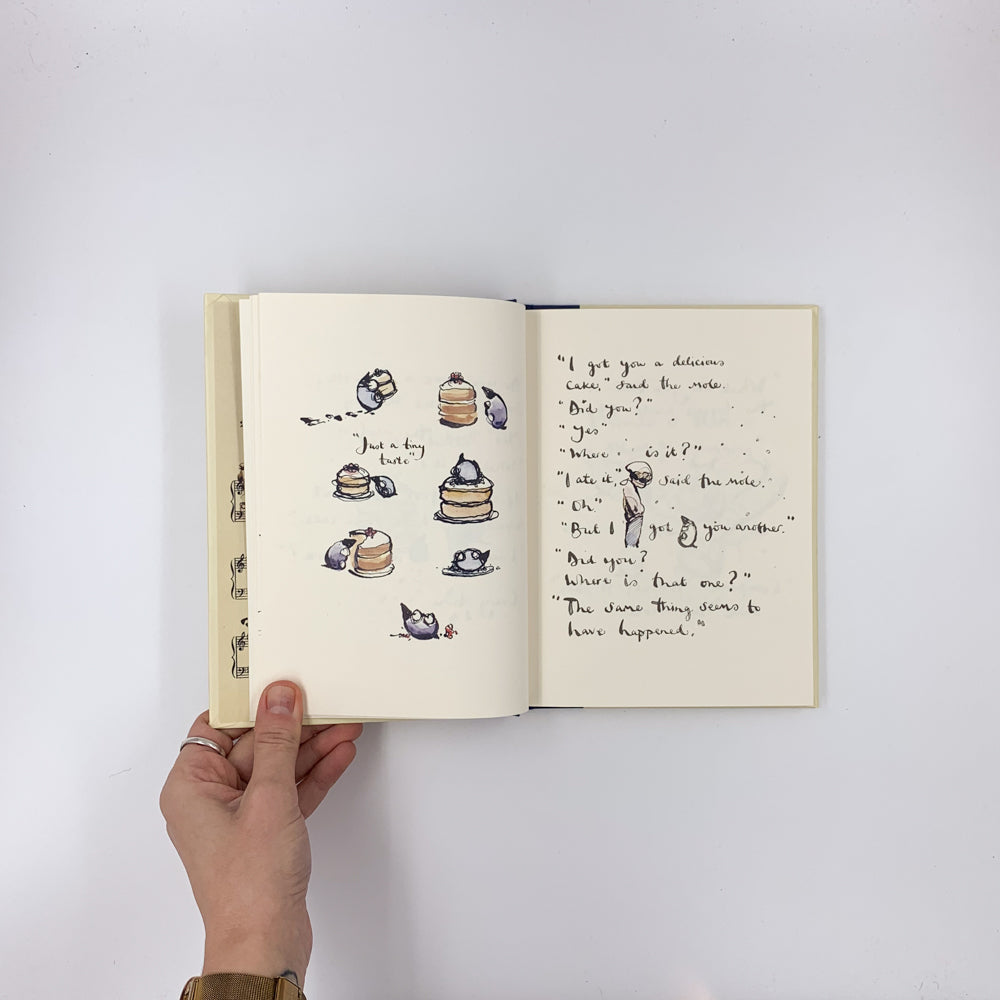 "Just a tiny
taste"
"I got you a delicious
cake," said the mole.
"Did you?"
"Yes"
"Where is it?"
"I ate it," said the mole.
"Oh."
"But I got you another."
"Did you?
Where is that one?"
"The same thing seems to
have happened."